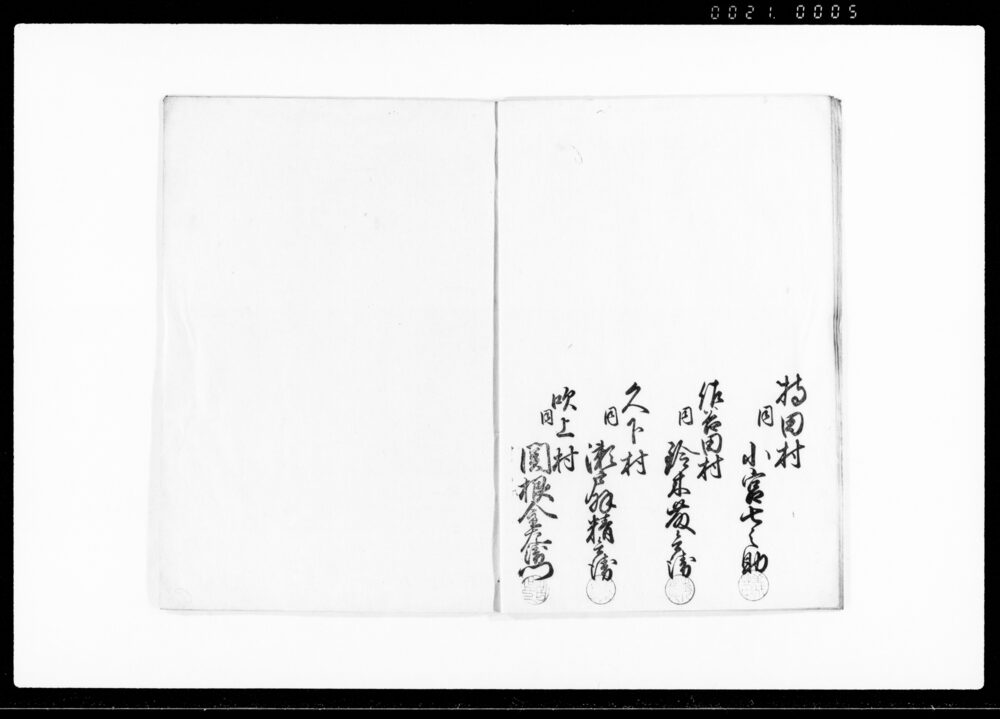 0021.0005
持田村
同 小宮七之助
佐谷田村
同 鈴木 兵衛
久下村
同 瀬戸 精 衛
吹上村
同 関根金右衛門